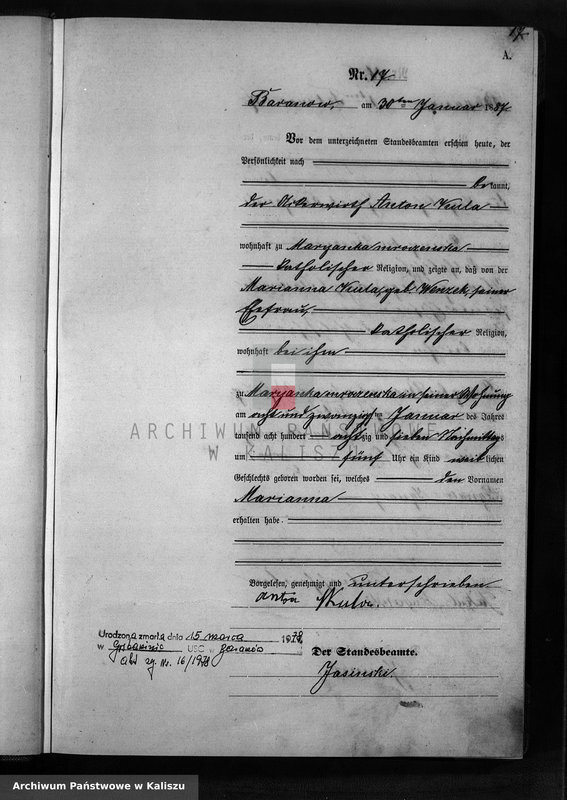 17.
A.
Nr. 17.
Baranow, am 30ten Januar 1887
Vor dem unterzeichneten Standesbeamten erschien heute, der
Persönlichkeit nach
bekannt,
der Ackerwirth Anton Kula
wohnhaft zu Maryanka mroczenska
katholischer Religion, und zeigte an, daß von der
Marianna Kula, geb. Wenzek, seiner
Ehefrau,
katholischer Religion,
wohnhaft bei ihm
zu Maryanka mroczenska in seiner Wohnung
am acht und zwanzigten Januar des Jahres
tausend acht hundert achtzig und sieben Nachmittags
um fünf Uhr ein Kind weiblichen
Geschlechts geboren worden sei, welches den Vornamen
Marianna
erhalten habe.
Vorgelesen, genehmigt und unterschrieben
Kula
Der Standesbeamte.
Jasinski.
Urodzona zmarła dnia 15 marca 1978
w USC w Baranów
akt zg. Nr. 16/1978
ARCHIWUM PAŃSTWOWE
W KALISZU
Archiwum Państwowe w Kaliszu